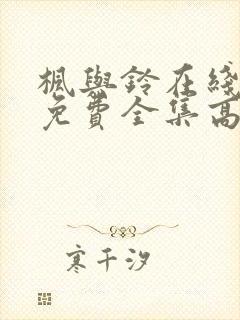 楓與鈴在綫
免費全集高
寒千汐